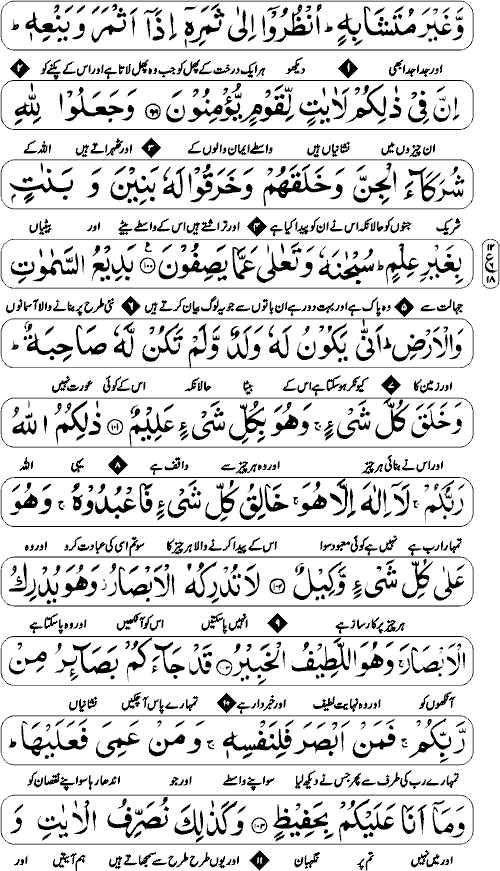 وَّغَيْرَ مُتَشَابِهٍ ؕ اُنْظُرُوْۤا اِلٰى ثَمَرِهٖۤ اِذَاۤ اَثْمَرَ وَيَنْعِهٖ ؕ
اور جدا جدا بھی ۱ دیکھو ہر ایک درخت کے پھل کو جب وہ پھل لاتا ہے اور اس کے پکنے کو ۲
اِنَّ فِىْ ذٰلِكُمْ لَاٰيٰتٍ لِّقَوْمٍ يُّؤْمِنُوْنَ ۹۹ وَجَعَلُوْا لِلّٰهِ
ان چیزوں میں نشانیاں ہیں واسطے ایمان والوں کے ۳ اور ٹھہراتے ہیں اللہ کے
شُرَكَآءَ الْجِنَّ وَخَلَقَهُمْ وَخَرَقُوْا لَهٗ بَنِيْنَ وَ بَنٰتٍۢ
شریک جنوں کو حالانکہ اس نے ان کو پیدا کیا ہے ۴ اور تراشتے ہیں اس کے واسطے بیٹے اور بیٹیاں
بِغَيْرِ عِلْمٍ ؕ سُبْحٰنَهٗ وَتَعٰلٰى عَمَّا يَصِفُوْنَ ۱۰۰ بَدِيْعُ السَّمٰوٰتِ
جہالت سے ۵ وہ پاک ہے اور بہت دور ہے ان باتوں سے جو یہ لوگ بیان کرتے ہیں ۶ نئی طرح پر بنانے والا آسمانوں
وَالْاَرْضِ ؕ اَنّٰى يَكُوْنُ لَهٗ وَلَدٌ وَّلَمْ تَكُنْ لَّهٗ صَاحِبَةٌ ؕ
اور زمین کا ۷ کیونکر ہو سکتا ہے اس کے بیٹا حالانکہ اس کے کوئی عورت نہیں
وَخَلَقَ كُلَّ شَىْءٍ ۚ وَهُوَ بِكُلِّ شَىْءٍ عَلِيْمٌ ۱۰۱ ذٰلِكُمُ اللّٰهُ
اور اس نے بنائی ہر چیز اور وہ ہر چیز سے واقف ہے ۸ یہی اللہ
رَبُّكُمْ ۚ لَاۤ اِلٰهَ اِلَّا هُوَ ۚ خَالِقُ كُلِّ شَىْءٍ فَاعْبُدُوْهُ ۚ وَهُوَ
تمہارا رب ہے نہیں ہے کوئی معبود سوا اس کے پیدا کرنے والا ہر چیز کا سو تم اسی کی عبادت کرو اور وہ
عَلٰى كُلِّ شَىْءٍ وَّكِيْلٌ ۱۰۲ لَا تُدْرِكُهُ الْاَبْصَارُ وَهُوَ يُدْرِكُ
ہر چیز پر کارساز ہے ۹ نہیں پا سکتیں اس کو آنکھیں اور وہ پا سکتا ہے
الْاَبْصَارَ ۚ وَهُوَ اللَّطِيْفُ الْخَبِيْرُ ۱۰۳ قَدْ جَآءَكُمْ بَصَآئِرُ مِنْ
آنکھوں کو اور وہ نہایت لطیف اور خبردار ہے ۱۰ تمہارے پاس آ چکیں نشانیاں
رَّبِّكُمْ ۚ فَمَنْ اَبْصَرَ فَلِنَفْسِهٖ ۚ وَمَنْ عَمِىَ فَعَلَيْهَا ؕ
تمہارے رب کی طرف سے پھر جس نے دیکھ لیا سو اپنے واسطے اور جو اندھا رہا سو اپنے نقصان کو
وَمَاۤ اَنَا عَلَيْكُمْ بِحَفِيْظٍ ۱۰۴ وَكَذٰلِكَ نُصَرِّفُ الْاٰيٰتِ وَ
اور میں نہیں تم پر نگہبان ۱۱ اور یوں طرح طرح سے سمجھاتے ہیں ہم آیتیں اور